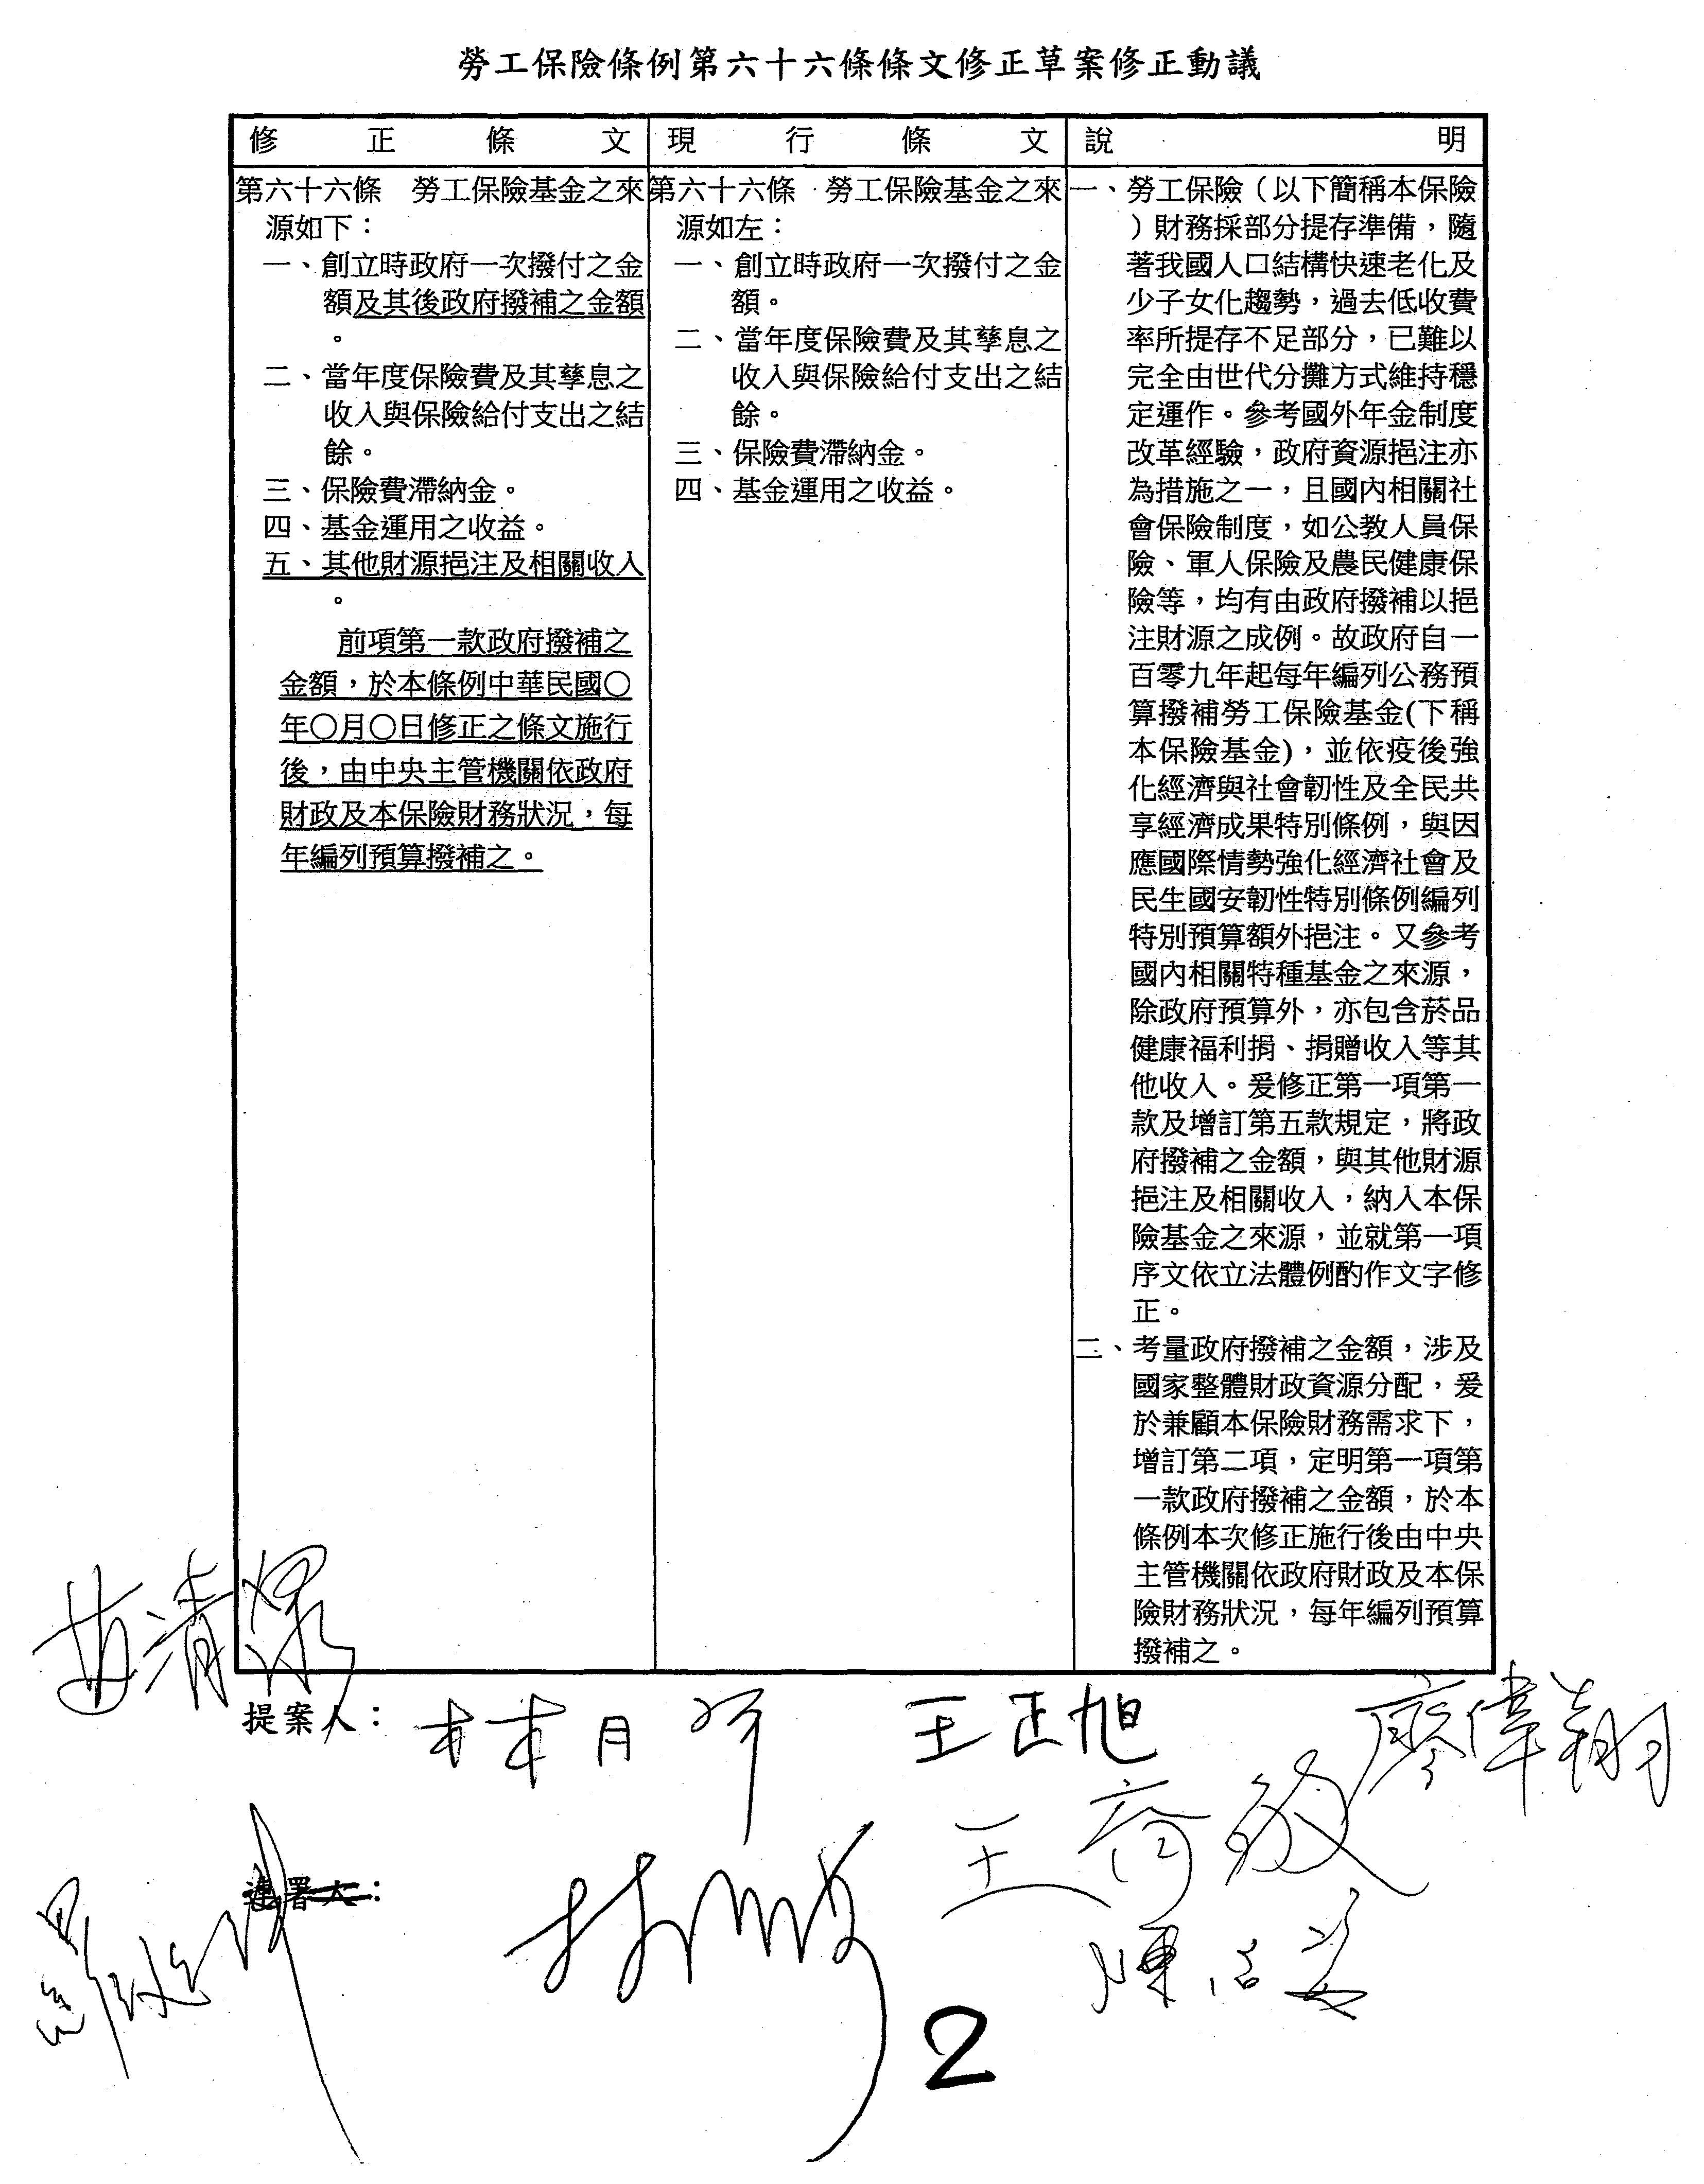 勞工保險條例第六十六條條文修正草案修正動議
修正條文
第六十六條　勞工保險基金之來
源如下：
一、創立時政府一次撥付之金
額及其後政府撥補之金額
。
二、當年度保險費及其孳息之
收入與保險給付支出之結
餘。
三、保險費滯納金。
四、基金運用之收益。
五、其他財源挹注及相關收入
。
前項第一款政府撥補之
金額，於本條例中華民國〇
年〇月〇日修正之條文施行
後，由中央主管機關依政府
財政及本保險財務狀況，每
年編列預算撥補之。
現行條文
第六十六條　勞工保險基金之來
源如左：
一、創立時政府一次撥付之金
額。
二、當年度保險費及其孳息之
收入與保險給付支出之結
餘。
三、保險費滯納金。
四、基金運用之收益。
說明
一、勞工保險（以下簡稱本保險
）財務採部分提存準備，隨
著我國人口結構快速老化及
少子女化趨勢，過去低收費
率所提存不足部分，已難以
完全由世代分攤方式維持穩
定運作。參考國外年金制度
改革經驗，政府資源挹注亦
為措施之一，且國內相關社
會保險制度，如公教人員保
險、軍人保險及農民健康保
險等，均有由政府撥補以挹
注財源之成例。故政府自一
百零九年起每年編列公務預
算撥補勞工保險基金(下稱
本保險基金)，並依疫後強
化經濟與社會韌性及全民共
享經濟成果特別條例，與因
應國際情勢強化經濟社會及
民生國安韌性特別條例編列
特別預算額外挹注。又參考
國內相關特種基金之來源，
除政府預算外，亦包含菸品
健康福利捐、捐贈收入等其
他收入。爰修正第一項第一
款及增訂第五款規定，將政
府撥補之金額，與其他財源
挹注及相關收入，納入本保
險基金之來源，並就第一項
序文依立法體例酌作文字修
正。
二、考量政府撥補之金額，涉及
國家整體財政資源分配，爰
於兼顧本保險財務需求下，
增訂第二項，定明第一項第
一款政府撥補之金額，於本
條例本次修正施行後由中央
主管機關依政府財政及本保
險財務狀況，每年編列預算
撥補之。
提案人：
林月琴
王正旭
廖偉翔
王育敏
連署人：
陳菁徽
2